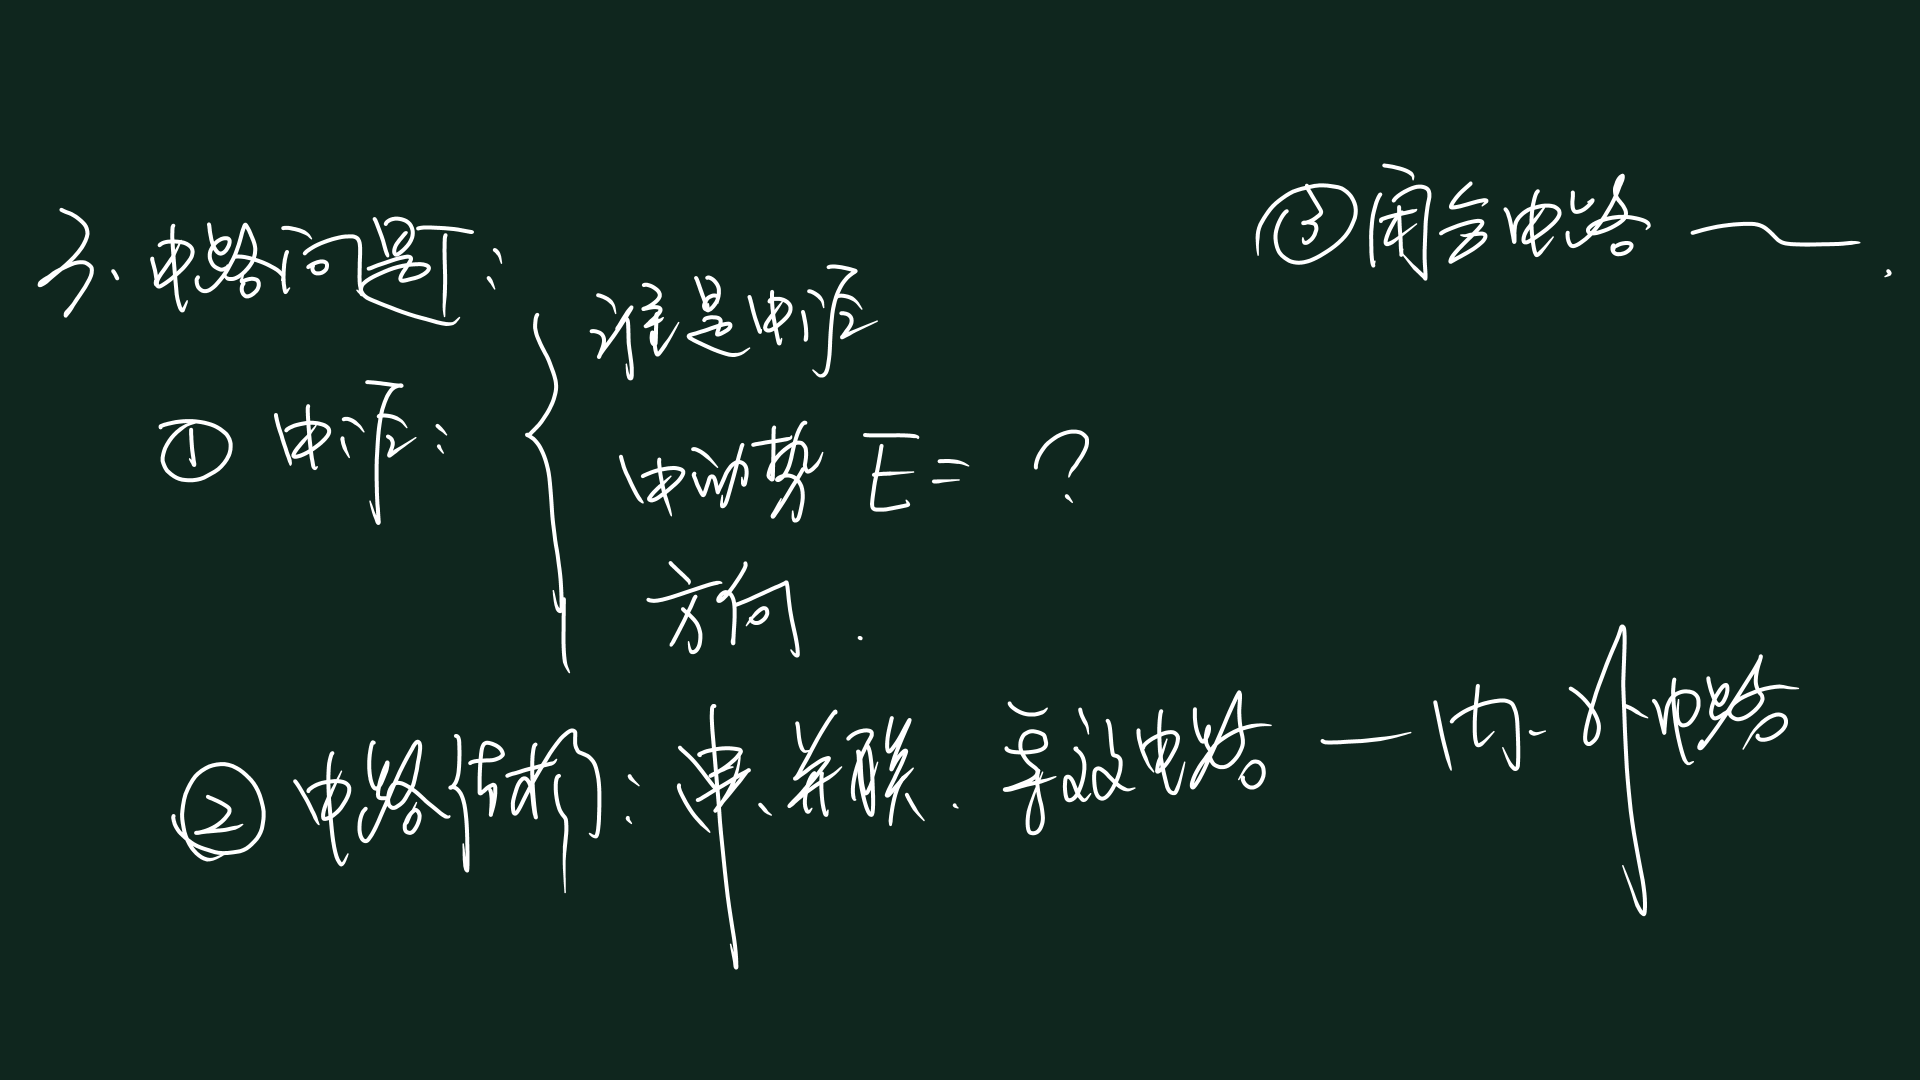 3、电路问题：
① 电源：
谁是电源
电动势 E = ?
方向.
② 电路结构：串、并联. 等效电路 — 内、外电路
③ 闭合电路